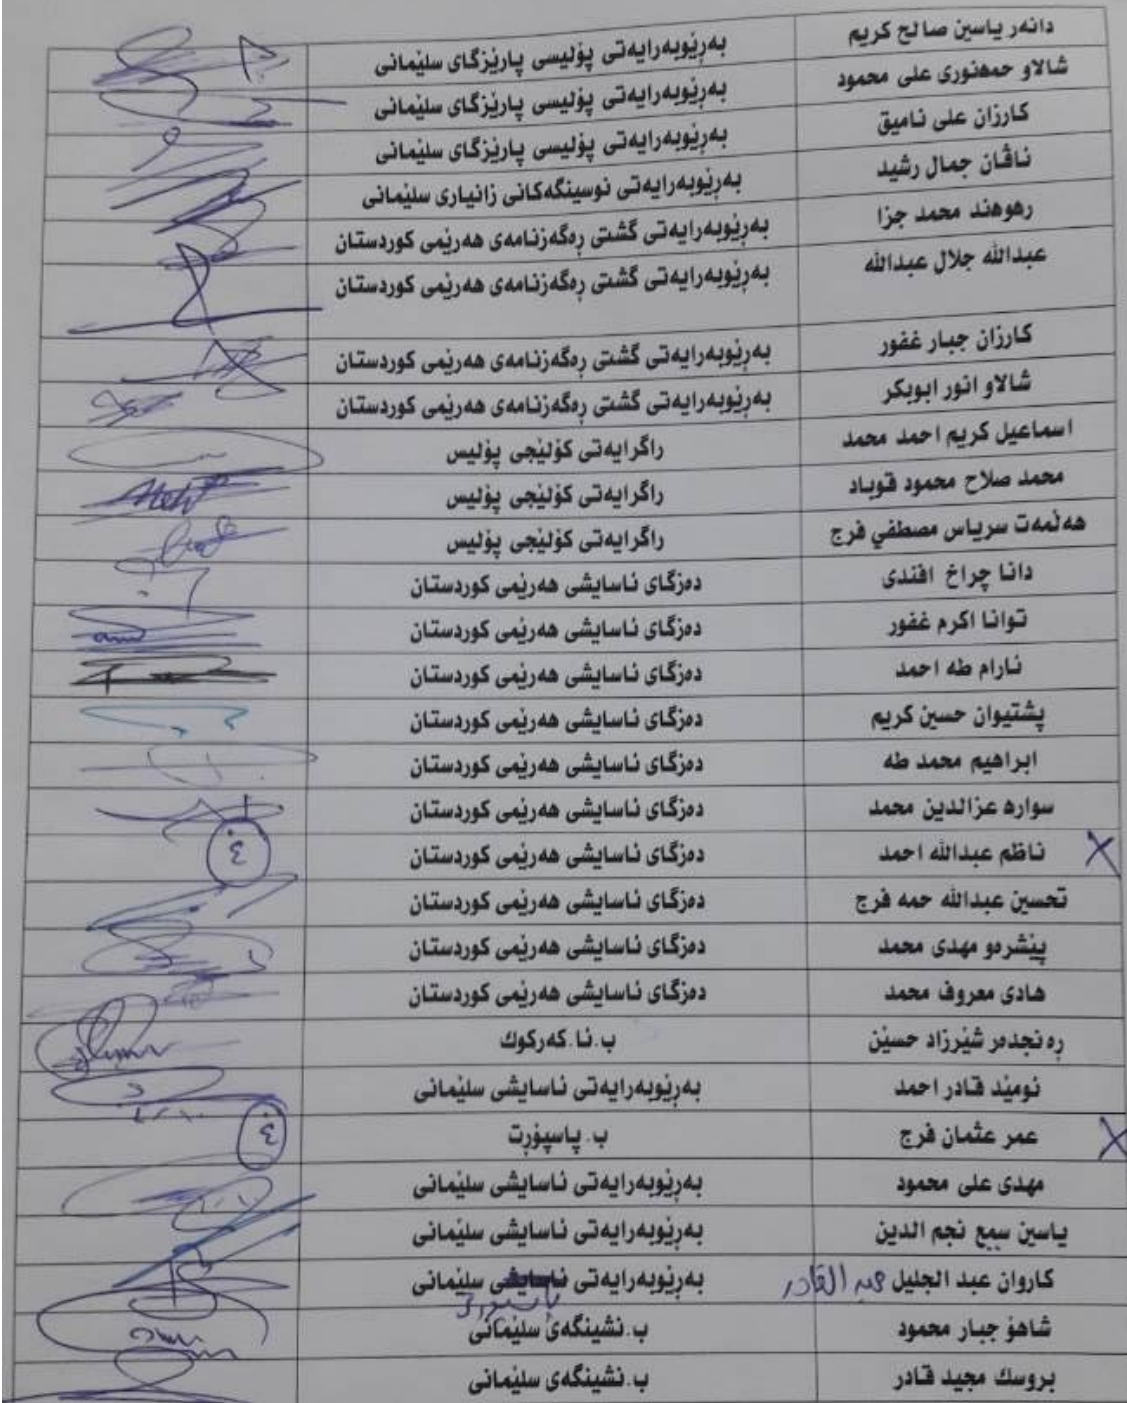 دانەر یاسین صالح کریم بەڕێوبەرایەتی پۆلیسی پارێزگای سلێمانی
شالاو حمەنوری علی محمود بەڕێوبەرایەتی پۆلیسی پارێزگای سلێمانی
کارزان علی ئامیق بەڕێوبەرایەتی پۆلیسی پارێزگای سلێمانی
ئاڤان جمال رشید بەڕێوبەرایەتی نوسینگەکانی زانیاری سلێمانی
رهوهند محمد جزا بەڕێوبەرایەتی گشتی ڕەگەزنامەی هەرێمی کوردستان
عبدالله جلال عبدالله بەڕێوبەرایەتی گشتی ڕەگەزنامەی هەرێمی کوردستان
کارزان جبار غفور بەڕێوبەرایەتی گشتی ڕەگەزنامەی هەرێمی کوردستان
شالاو انور ابوبکر بەڕێوبەرایەتی گشتی ڕەگەزنامەی هەرێمی کوردستان
اسماعیل کریم احمد محمد راگرایەتی کۆلێجی پۆلیس
محمد صلاح محمود قوباد راگرایەتی کۆلێجی پۆلیس
هەڵمەت سریاس مصطفي فرج راگرایەتی کۆلێجی پۆلیس
دانا چراخ افندی دەزگای ئاسایشی هەرێمی کوردستان
توانا اکرم غفور دەزگای ئاسایشی هەرێمی کوردستان
ئارام طه احمد دەزگای ئاسایشی هەرێمی کوردستان
پشتیوان حسین کریم دەزگای ئاسایشی هەرێمی کوردستان
ابراهیم محمد طه دەزگای ئاسایشی هەرێمی کوردستان
سواره عزالدین محمد دەزگای ئاسایشی هەرێمی کوردستان
ناظم عبدالله احمد دەزگای ئاسایشی هەرێمی کوردستان غ
تحسین عبدالله حمه فرج دەزگای ئاسایشی هەرێمی کوردستان
پێشرەو مهدی محمد دەزگای ئاسایشی هەرێمی کوردستان
هادی معروف محمد دەزگای ئاسایشی هەرێمی کوردستان
ڕه نجدەر شێرزاد حسێن ب.ئا.کەرکوك
ئومێد قادر احمد بەڕێوبەرایەتی ئاسایشی سلێمانی
عمر عثمان فرج ب. پاسپۆڕت غ
مهدی علی محمود بەڕێوبەرایەتی ئاسایشی سلێمانی
یاسین سبع نجم الدین بەڕێوبەرایەتی ئاسایشی سلێمانی
کاروان عبد الجلیل عبد القادر بەڕێوبەرایەتی ئاسایشی سلێمانی
شاهۆ جبار محمود ب.نشینگەی سلێمانی
بروسك مجید قادر ب.نشینگەی سلێمانی